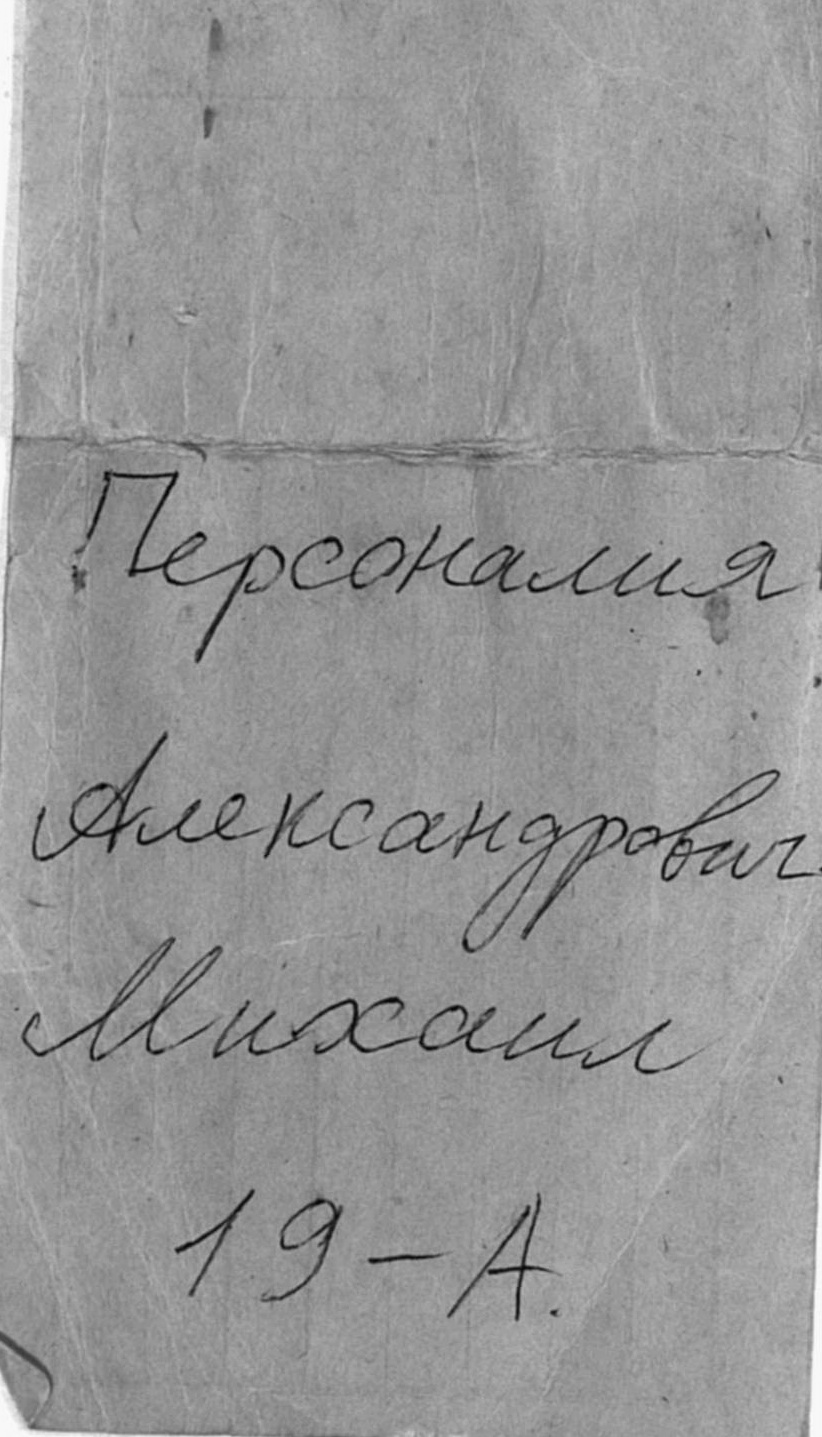 Персоналия
Александрович
Михаил
19-А.